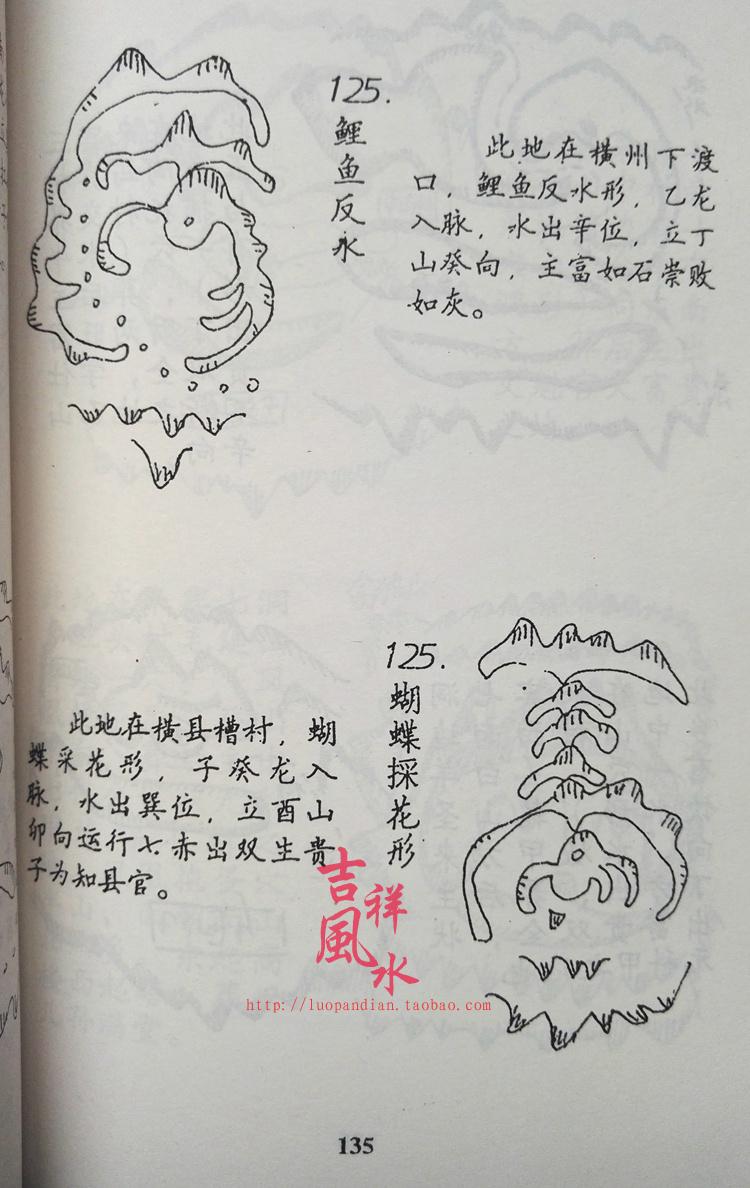 125.
鲤鱼反水
此地在横州下渡
口，鲤鱼反水形，乙龙
入脉，水出辛位，立丁
山癸向，主富如石崇败
如灰。
125.
蝴蝶採花形
此地在横县槽村，蝴
蝶采花形，子癸龙入
脉，水出巽位，立酉山
卯向运行七赤出双生贵
子为知县官。
吉祥
風水
http://luopandian.taobao.com
135